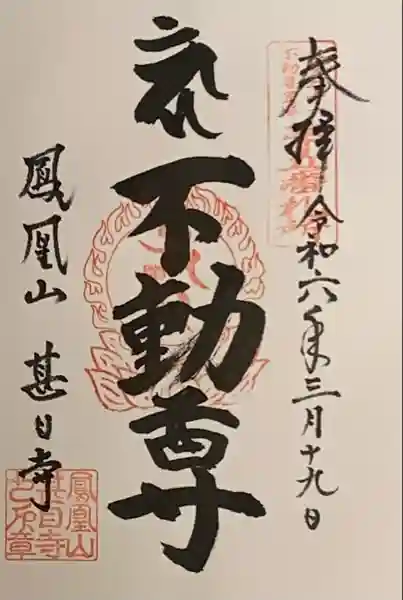 奉拝
令和六年三月十九日
不動尊
鳳凰山 甚目寺
鳳凰山
甚目寺
之印章